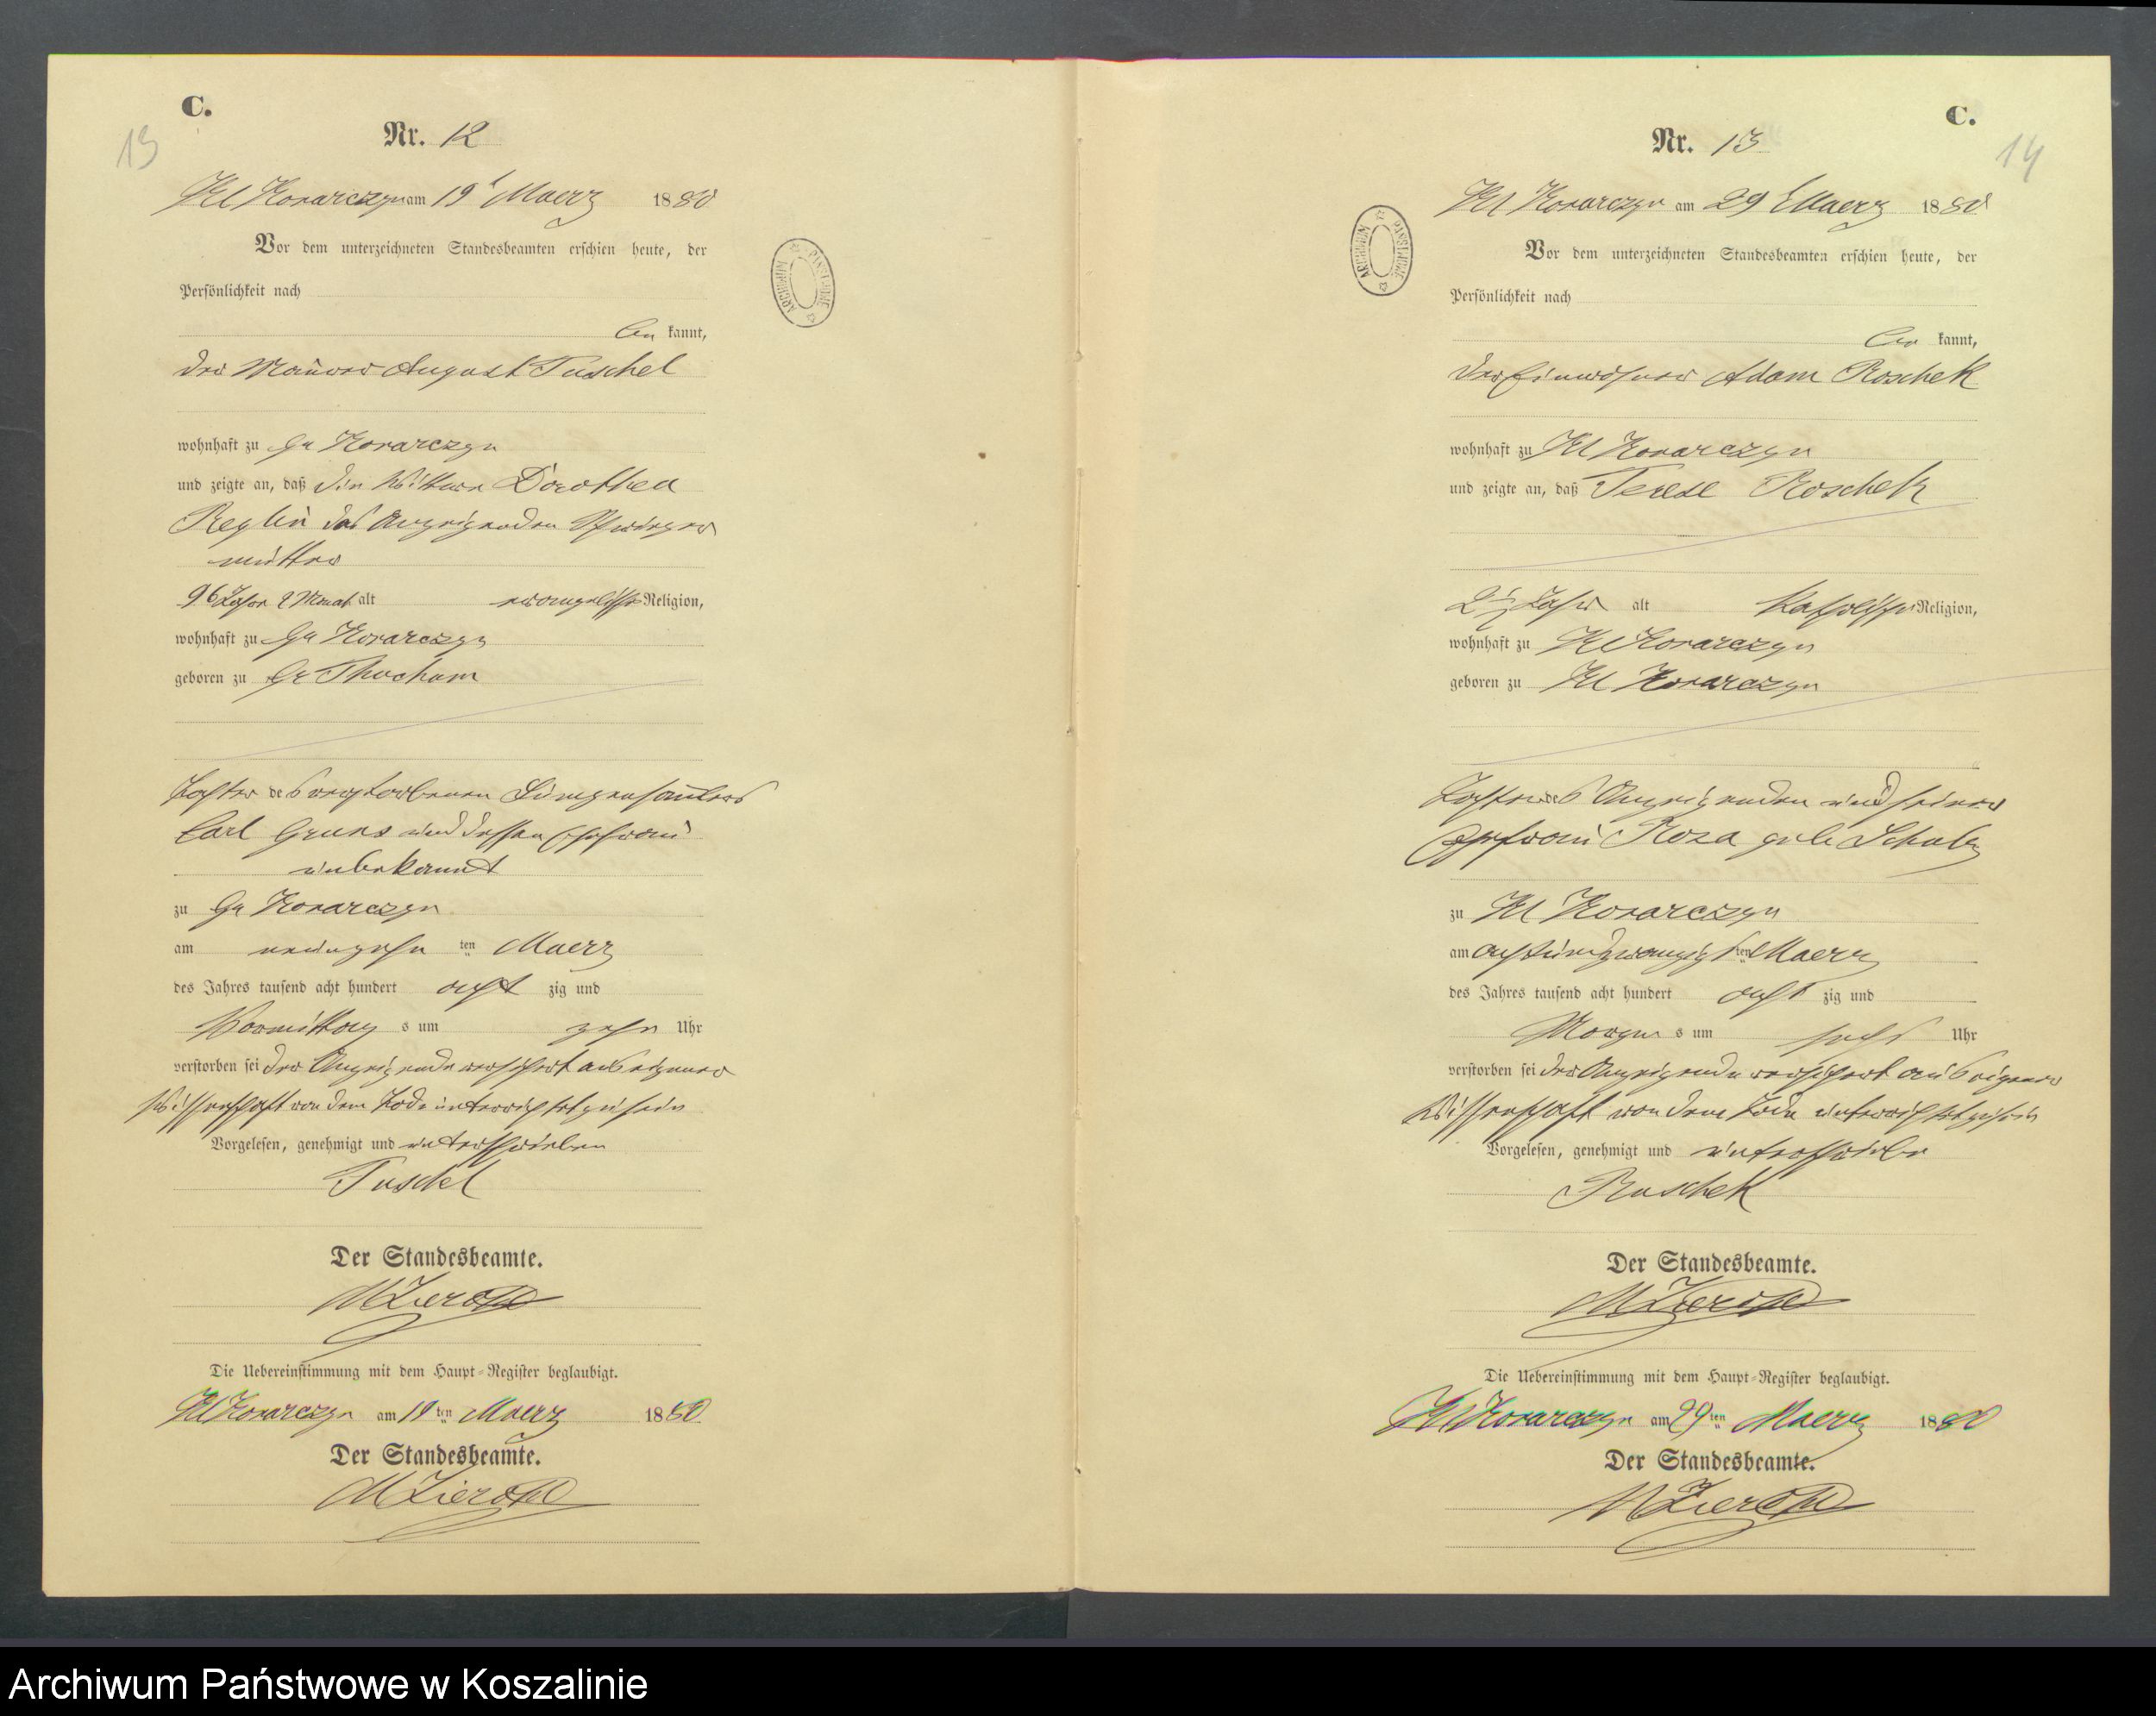 C.
13
Nr. 12
Kl Konarczyn am 19t Maerz 1880
Vor dem unterzeichneten Standesbeamten erschien heute, der
Persönlichkeit nach
be kannt,
der Maurer August Tuschel
wohnhaft zu Gr Konarczyn
und zeigte an, daß die Wittwe Dorothea
Reglin des Anzeigenden Schwieger
mutter
96 Jahre 2 Monat alt evangelische Religion,
wohnhaft zu Gr Konarczyn
geboren zu Gr
Tochter des verstorbenen
Carl und dessen Ehefrau
unbekannt
zu Gr Konarczyn
am neunzehn ten Maerz
des Jahres tausend acht hundert acht zig und
Vormittag s um zehn Uhr
verstorben sei der Anzeigende versichert aus eigener
Wissenschaft von dem Tode unterrichtet zu sein
Vorgelesen, genehmigt und unterschrieben
Tuschel
Der Standesbeamte.
Die Uebereinstimmung mit dem Haupt-Register beglaubigt.
Kl Konarczyn am 19 ten Maerz 1880
Der Standesbeamte.
ARCHIWUM PAŃSTWOWE
C.
14
Nr. 13
Kl Konarczyn am 29 Maerz 1880
Vor dem unterzeichneten Standesbeamten erschien heute, der
Persönlichkeit nach
be kannt,
der Einwohner Adam Roschek
wohnhaft zu Kl Konarczyn
und zeigte an, daß Roschek
2½ Jahr alt katholischer Religion,
wohnhaft zu Kl Konarczyn
geboren zu Kl Konarczyn
Tochter des Anzeigenden und seiner
Ehefrau Rosa geb Schulz
zu Kl Konarczyn
am achtundzwanzigsten Maerz
des Jahres tausend acht hundert acht zig und
Morgen s um sechs Uhr
verstorben sei der Anzeigende versichert aus eigener
Wissenschaft von dem Tode unterrichtet zu sein
Vorgelesen, genehmigt und unterschrieben
Ruschek
Der Standesbeamte.
Die Uebereinstimmung mit dem Haupt-Register beglaubigt.
Kl Konarczyn am 29 ten Maerz 1880
Der Standesbeamte.
ARCHIWUM PAŃSTWOWE
Archiwum Państwowe w Koszalinie